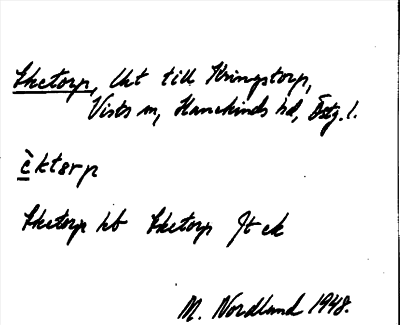 Eketorp, lht till Kringstorp,
Vists sn, Hanekinds hd, Östg. l.
èktɵrp
Eketorp hb Eketorp Jt ek
M. Nordland 1948.